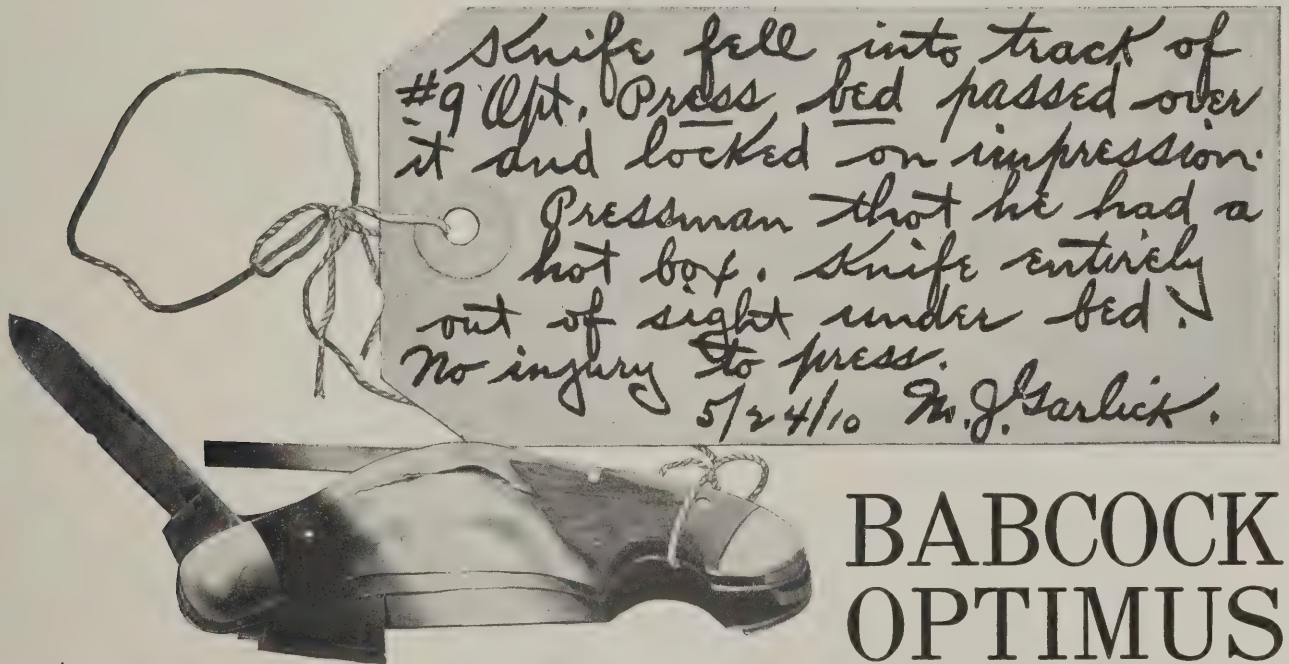 Knife fell into track of
#9 Opt. Press bed passed over
it and locked on impression.
Pressman thot he had a
hot box. Knife entirely
out of sight under bed.
No injury to press.
5/24/10 M. J. Garlick.
BABCOCK
OPTIMUS